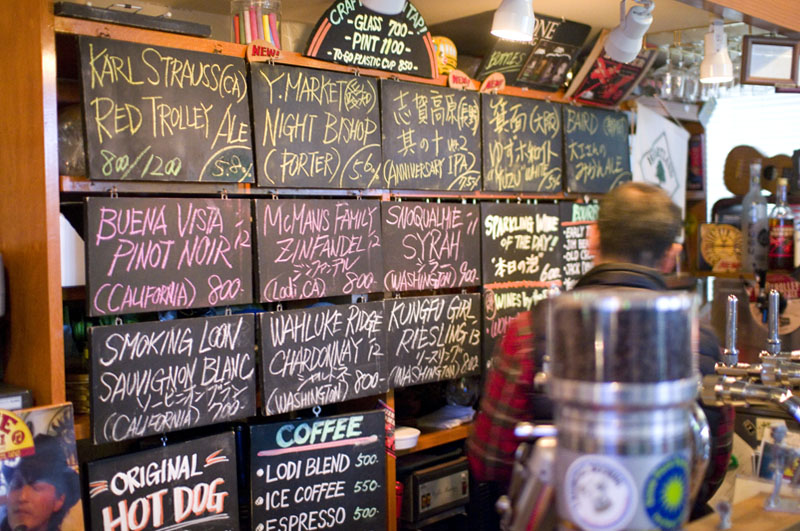 CRAFT
TAP!
GLASS 700
PINT 1100
TO-GO PLASTIC CUP 850
NEW!
KARL STRAUSS (CA)
RED TROLLEY ALE
800/1200
5.8%
Y. MARKET
NIGHT BISHOP
(PORTER)
5.6%
志賀高原
其の十
(ANNIVERSARY IPA)
箕面(大阪)
ゆずホワイト
YUZU WHITE
5%
BAIRD
みかんALE
BUENA VISTA
PINOT NOIR '12
(CALIFORNIA) 800-
McMANIS FAMILY
ZINFANDEL
ジンファンデル
(Lodi, CA) 800-
SNOQUALMIE '11
SYRAH
(WASHINGTON) 900-
SPARKLING WINE
OF THE DAY!
本日の泡
600-
SMOKING LOON
SAUVIGNON BLANC
ソービニオンブラン
(CALIFORNIA) 700
WAHLUKE RIDGE
CHARDONNAY '12
シャルドネ
(WASHINGTON) 800
KUNGFU GIRL
RIESLING '13
リースリング
(WASHINGTON) 850-
WINES by
ORIGINAL
HOT DOG
COFFEE
・LODI BLEND 500-
・ICE COFFEE 550
・ESPRESSO 500